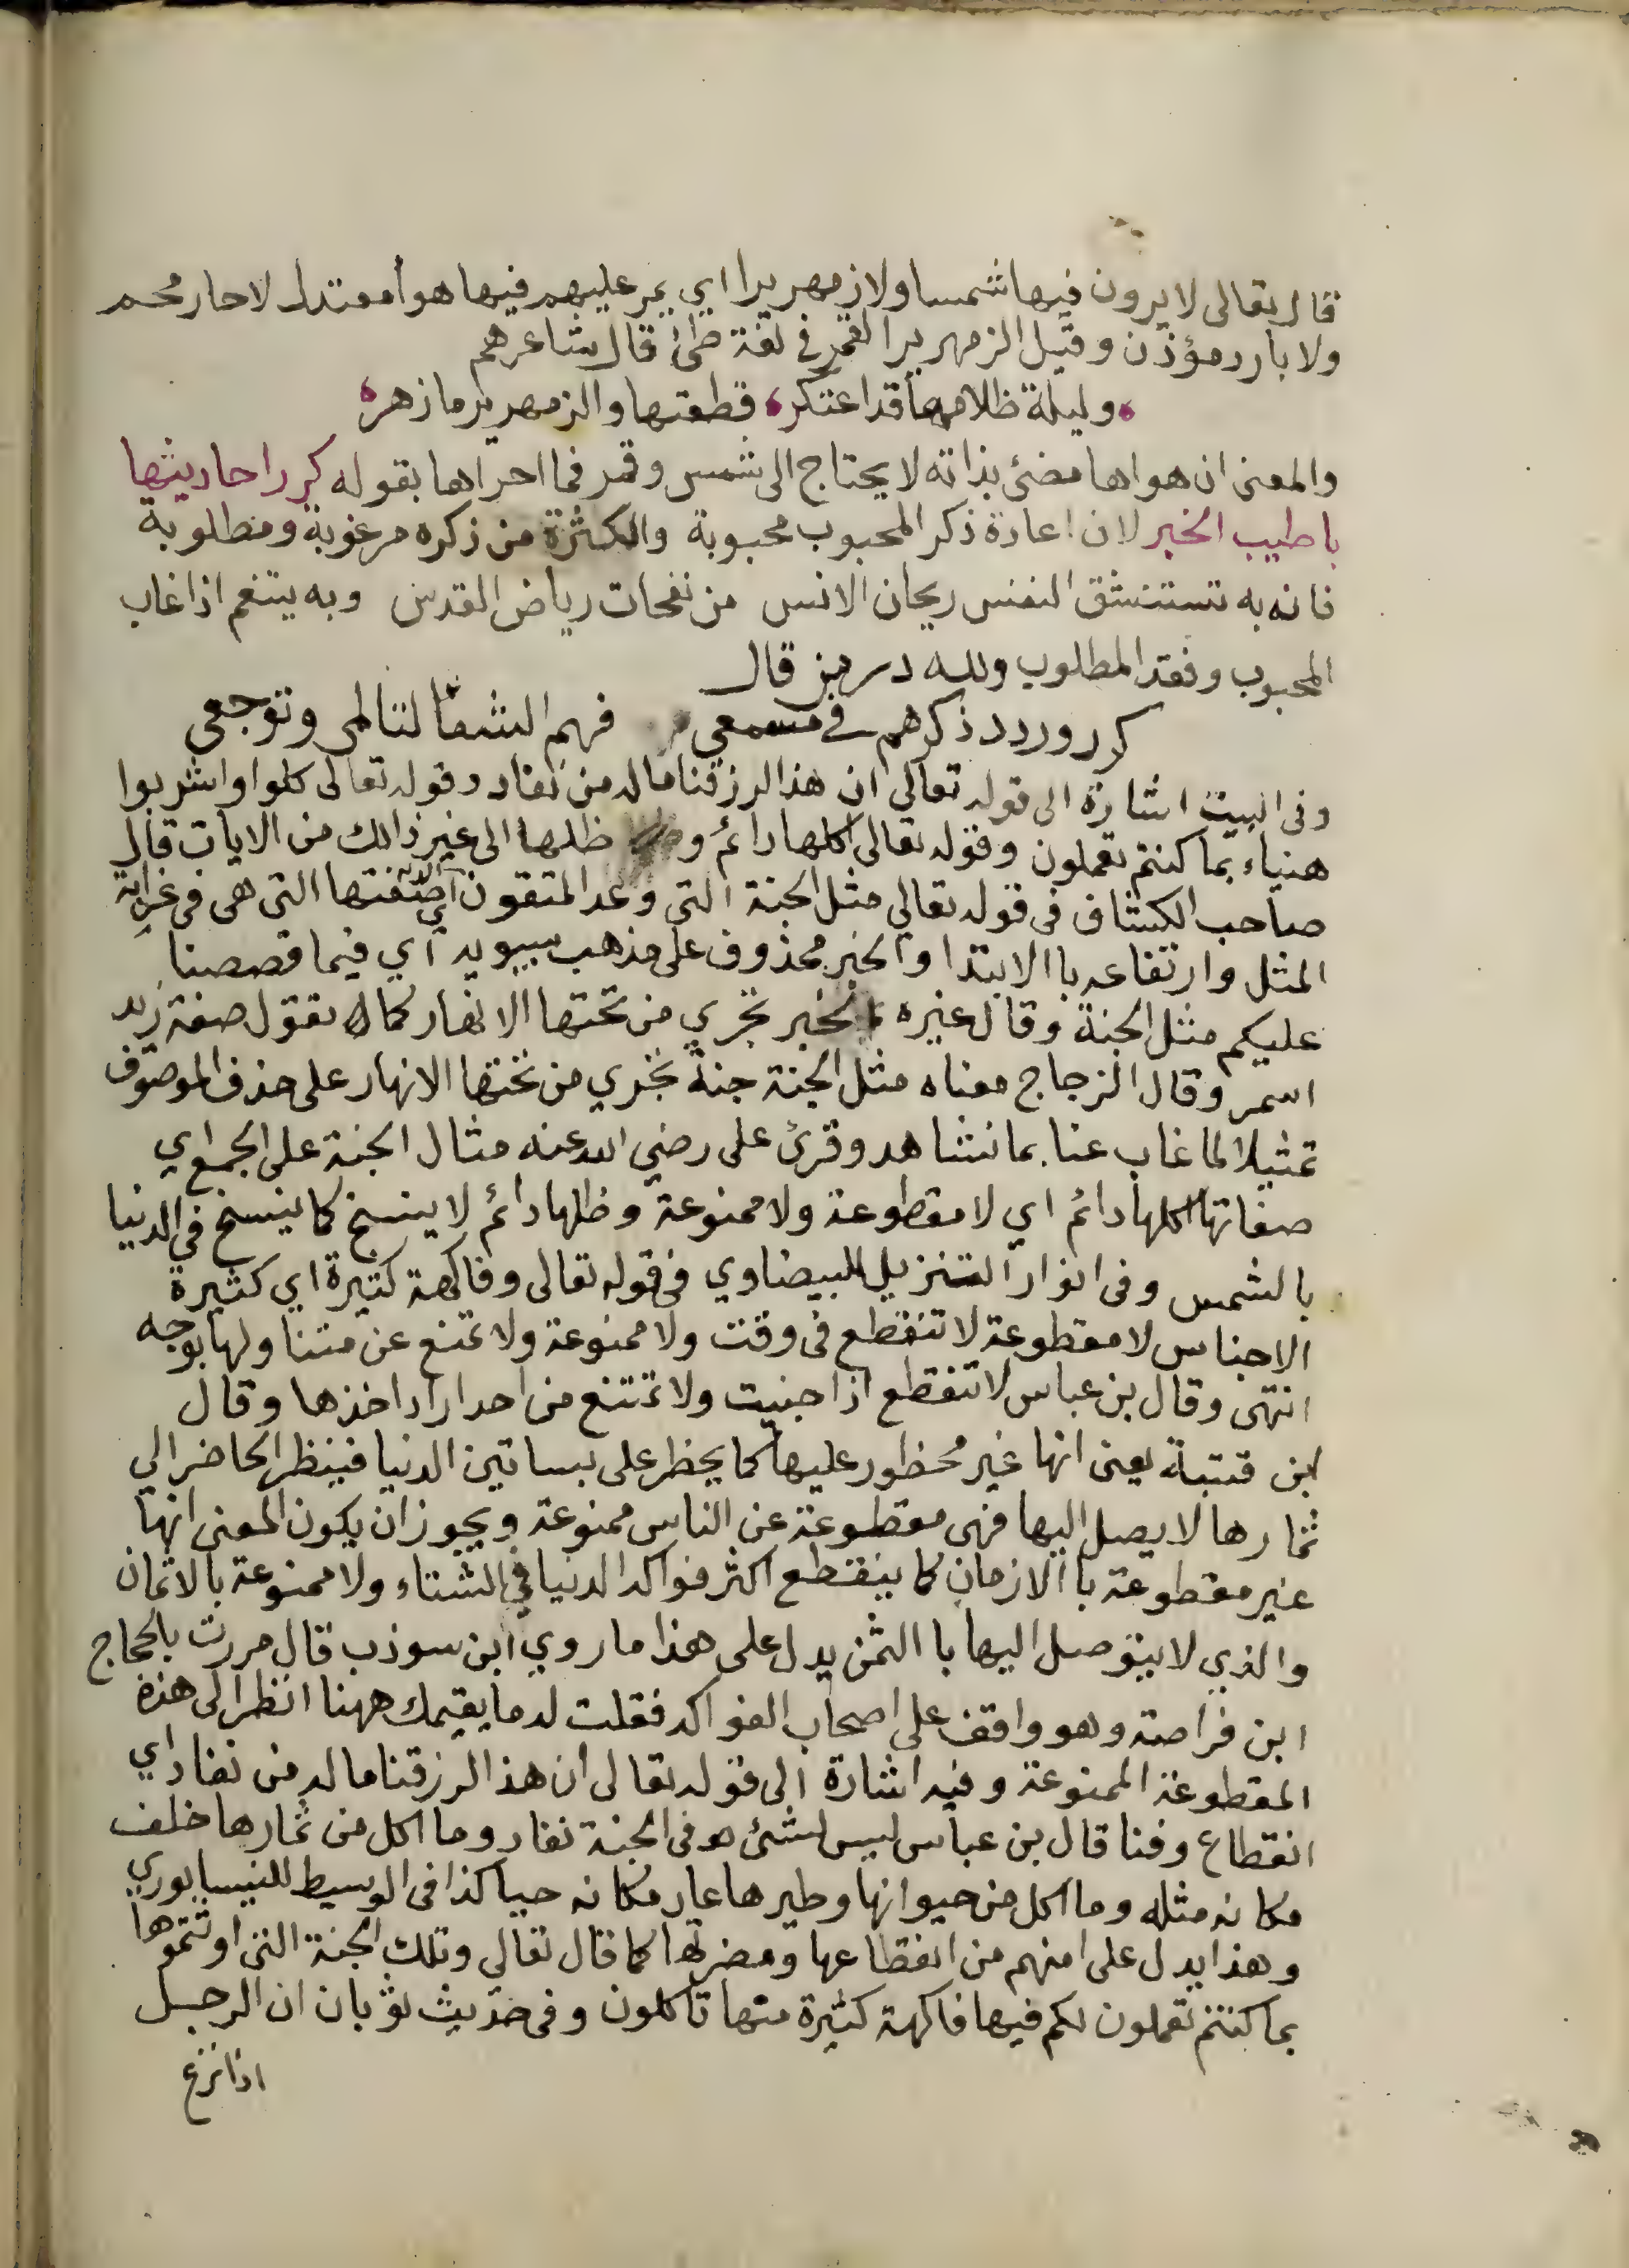 قال تعالى لا يرون فيها شمسا ولا زمهريرا اي يمر عليهم فيها هوأ معتدل لا حار محمر
ولا بارد مؤذن وقيل الزمهريرا القمر في لغة طئ قال شاعرهم
وليلة ظلامها قد اعتكر قطعتها والزمهرير ما زهر
والمعنى ان هواها مضئ بذاته لا يحتاج الى شمس وقمر فما احراها بقوله كرر احاديثها
با طيب الخبر لان اعادة ذكر المحبوب محبوبة والكثرة من ذكره مرغوبة ومطلوبة
فانه به تستنشق النفس ريحان الانس من نفحات رياض القدس وبه يتنعم اذا غاب
المحبوب وفقد المطلوب ولله در من قال
كرر وردد ذكرهم في مسمعي فهم الشفا لتالمى وتوجعي
وفى البيت اشارة الى قوله تعالى ان هذا لرزقنا ماله من نفاد وقوله تعالى كلوا واشربوا
هنياء بما كنتم تعملون وقوله تعالى اكلها دائم و ظلها الى غير ذالك من الايات قال
صاحب الكشاف فى قوله تعالى مثل الجنة التى وعد المتقون اي صفتها التى هى فى غرابة
المثل وارتفاعه با الابتدا والخبر محذوف على مذهب سيبويه اي فيما قصصنا
عليكم مثل الجنة وقال غيره الخبر تجري من تحتها الانهار كما تقول صفة زيد
اسمر وقال الزجاج معناه مثل الجنة جنة تجري من تحتها الانهار على حذف الموصوف
تمثيلا لما غاب عنا بما نشاهد وقرئ على رضي الله عنه مثال الجنة على الجمع اي
صفاتها اكلها دائم اي لا مقطوعة ولا ممنوعة وظلها دائم لا ينسخ كما ينسخ في الدنيا
بالشمس وفى انوار التنزيل للبيضاوي فى قوله تعالى وفاكهة كثيرة اي كثيرة
الاجناس لا مقطوعة لا تنقطع فى وقت ولا ممنوعة ولا تمنع عن متنا ولها بوجه
انتهى وقال بن عباس لا تنقطع اذا جنيت ولا تمتنع من احد اراد اخذها وقال
ابن قتيبة يعنى انها غير محظور عليها كما يحظر على بساتين الدنيا فينظر الحاضر الي
ثمارها لا يصل اليها فهى مقطوعة عن الناس ممنوعة ويجوز ان يكون المعنى انها
غير مقطوعة با الازمان كما ينقطع اكثر فواكه الدنيا في الشتاء ولا ممنوعة بالاثمان
والذي لا يتوصل اليها با الثمن يدل على هذا ما روي ابن سوذب قال مررت بالحجاج
ابن فراصة وهو واقف على اصحاب الفواكه فقلت له ما يقيمك ههنا انظر الى هذه
المقطوعة الممنوعة وفيه اشارة الى قوله تعالى ان هذا لرزقنا ماله من نفاد اي
انقطاع وفنا قال بن عباس ليس لشئ هو فى الجنة نفاد وما اكل من ثمارها خلف
مكانه مثله وما اكل من حيوانها وطيرها عاد مكانه حيا كذا فى الوسيط للنيسابوري
وهذا يدل على امنهم من انقطاعها ومضرتها كما قال تعالى وتلك الجنة التى اورثتموها
بما كنتم تعملون لكم فيها فاكهة كثيرة منها تاكلون وفى حديث ثوبان ان الرجل
اذا نزع